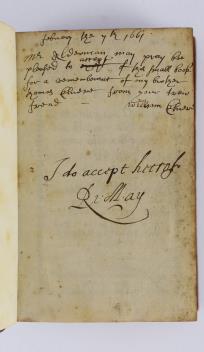 Febuary the 7th 1661
Mr Alderman may pray be
pleased to accept of this small book
for a remembrance of my brother
Thomas from your trew
frend William
I do accept heerof
Ri: May